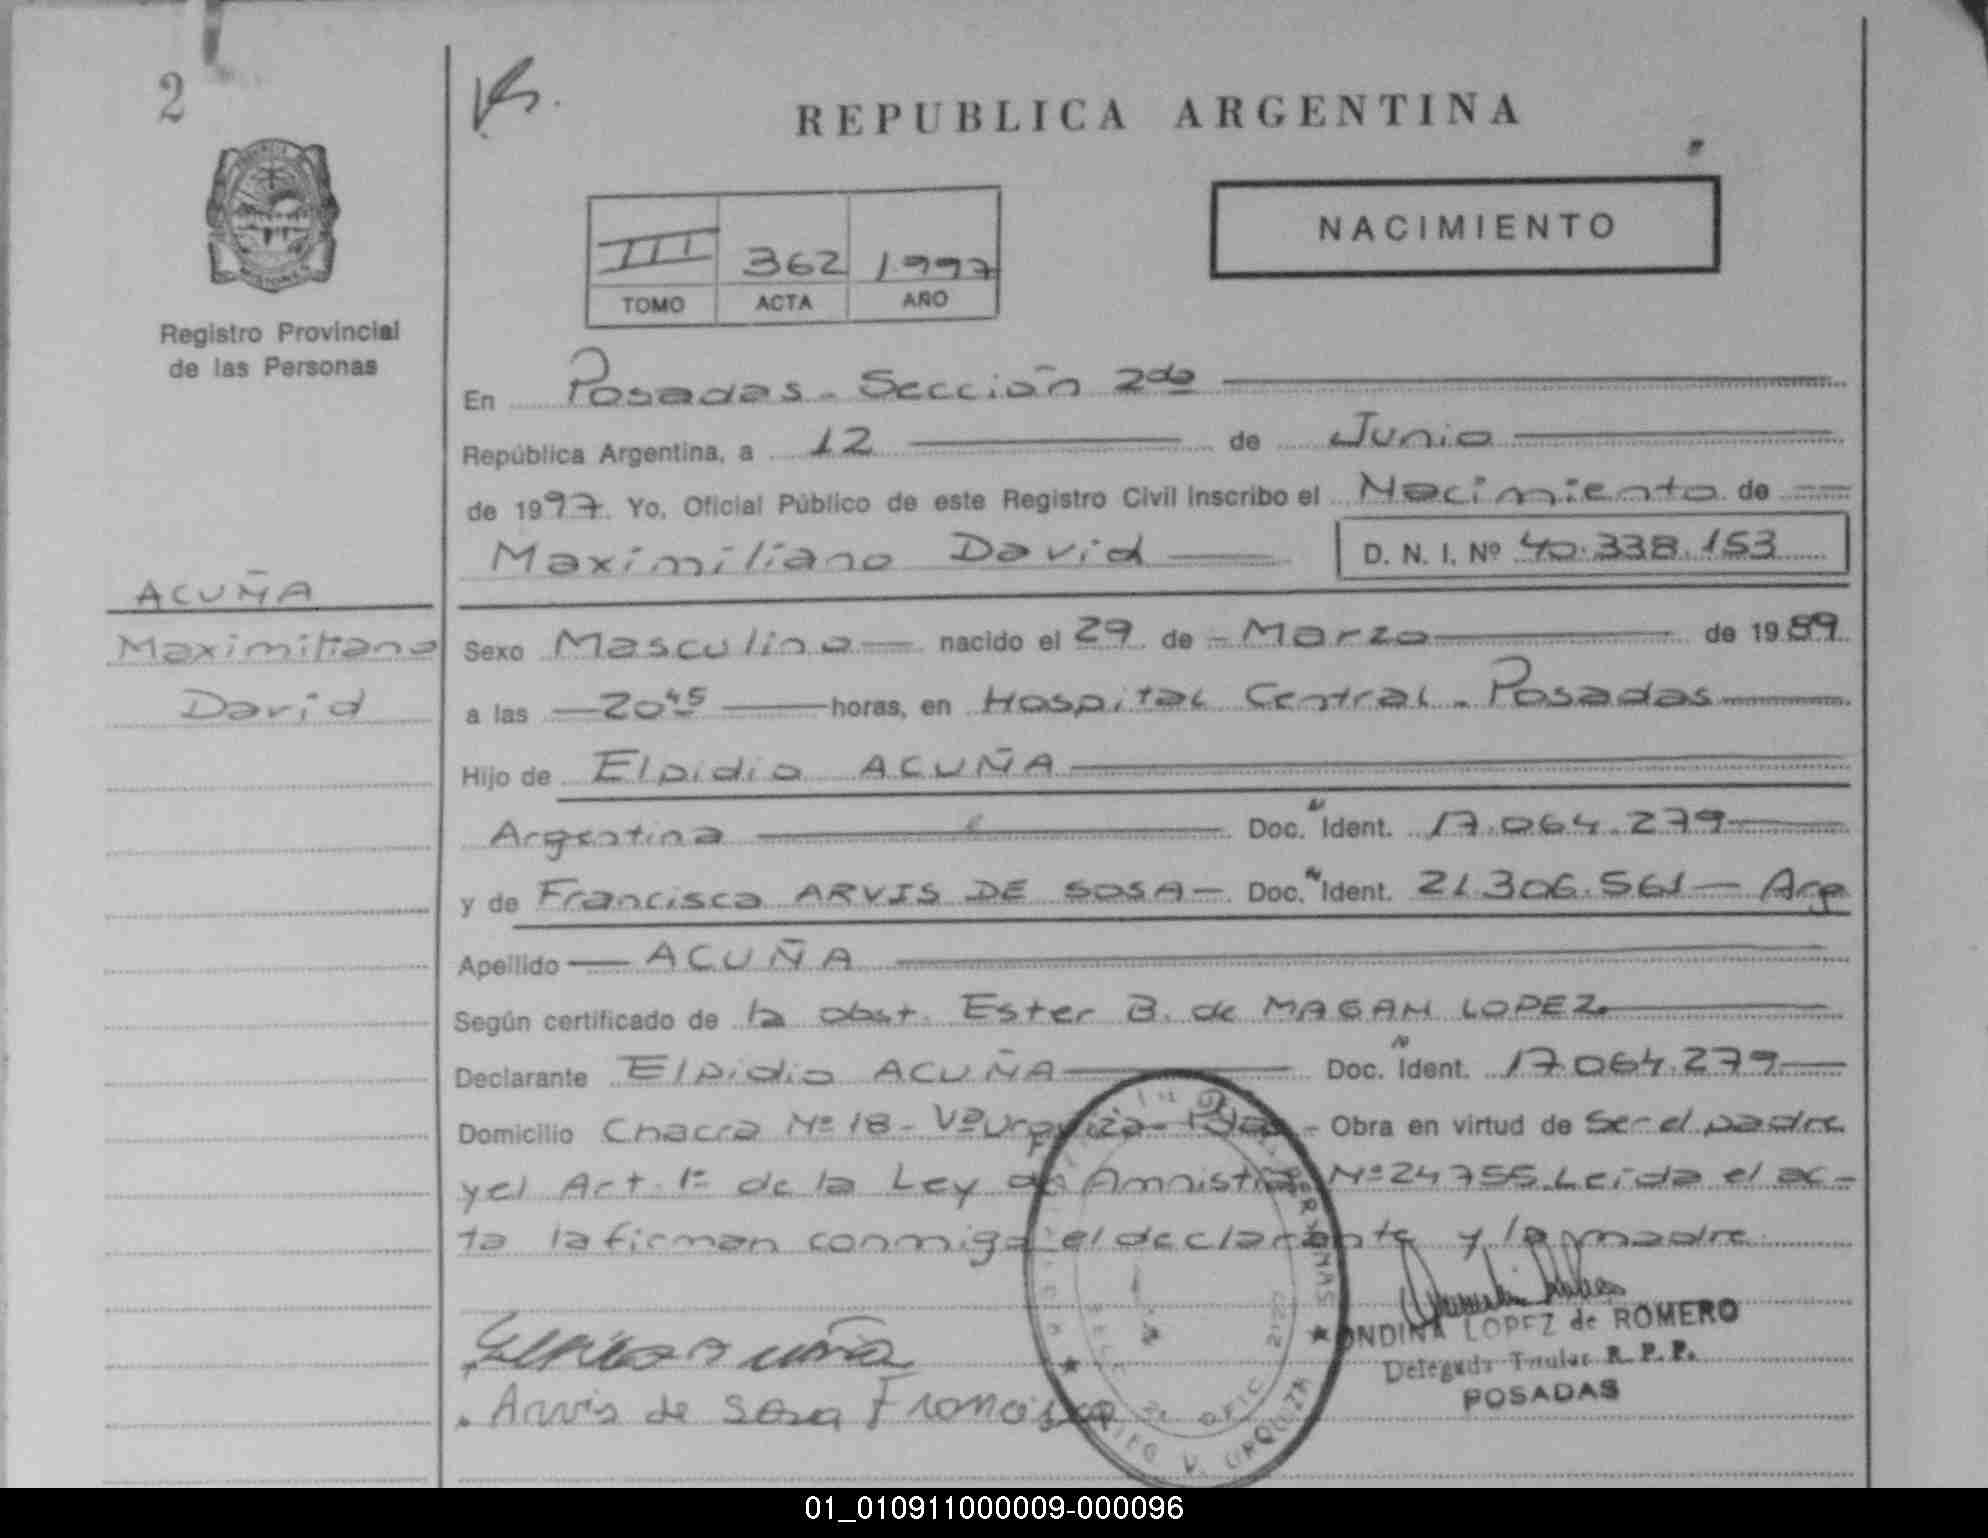 2
REPUBLICA ARGENTINA
NACIMIENTO
III 362 1.997
TOMO ACTA AÑO
Registro Provincial
de las Personas
En Posadas - Sección 2da
República Argentina, a 12 de Junio
de 1997. Yo, Oficial Público de este Registro Civil inscribo el Nacimiento de
Maximiliano David D. N. I. Nº 40.338.153
ACUÑA
Maximiliano
David
Sexo Masculino nacido el 29 de Marzo de 1989
a las 20 45 horas, en Hospital Central - Posadas
Hijo de Elpidio ACUÑA
Argentina Doc. Ident. 17.064.279
y de Francisca ARVIS DE SOSA - Doc. Ident. 21.306.561 - Arg
Apellido ACUÑA
Según certificado de la obst. Ester B. de MAGAN LOPEZ
Declarante Elpidio ACUÑA Doc. Ident. 17.064.279
Domicilio Chacra Nº 18 - Vª Urquiza - Pdas. - Obra en virtud de Ser el padre
y el Art. 1º de la Ley de Amnistia Nº 24755. Leida el ac-
ta la firman conmigo el declarante y la madre.
Arvis de Sosa Francisca
ONDINA LOPEZ de ROMERO
Delegada Titular R. P. P.
POSADAS
01_010911000009-000096